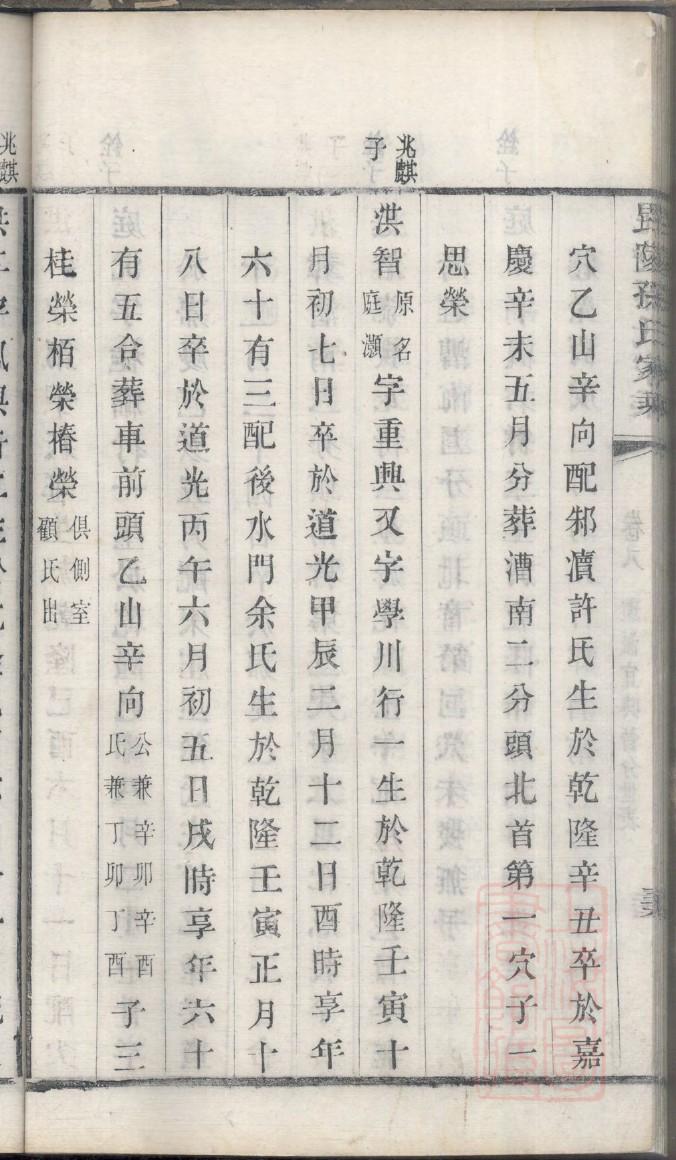 毘陵孫氏家乘
穴乙山辛向配邾瀆許氏生於乾隆辛丑卒於嘉
慶辛未五月分葬漕南二分頭北首第一穴子一
思榮
兆麒
子
洪智原名庭灝字重興又字學川行一生於乾隆壬寅十
月初七日卒於道光甲辰二月十二日酉時享年
六十有三配後水門余氏生於乾隆壬寅正月十
八日卒於道光丙午六月初五日戌時享年六十
有五合葬車前頭乙山辛向公兼辛卯辛酉氏兼丁卯丁酉子三
桂榮栢榮椿榮俱側室顧氏出
兆麒